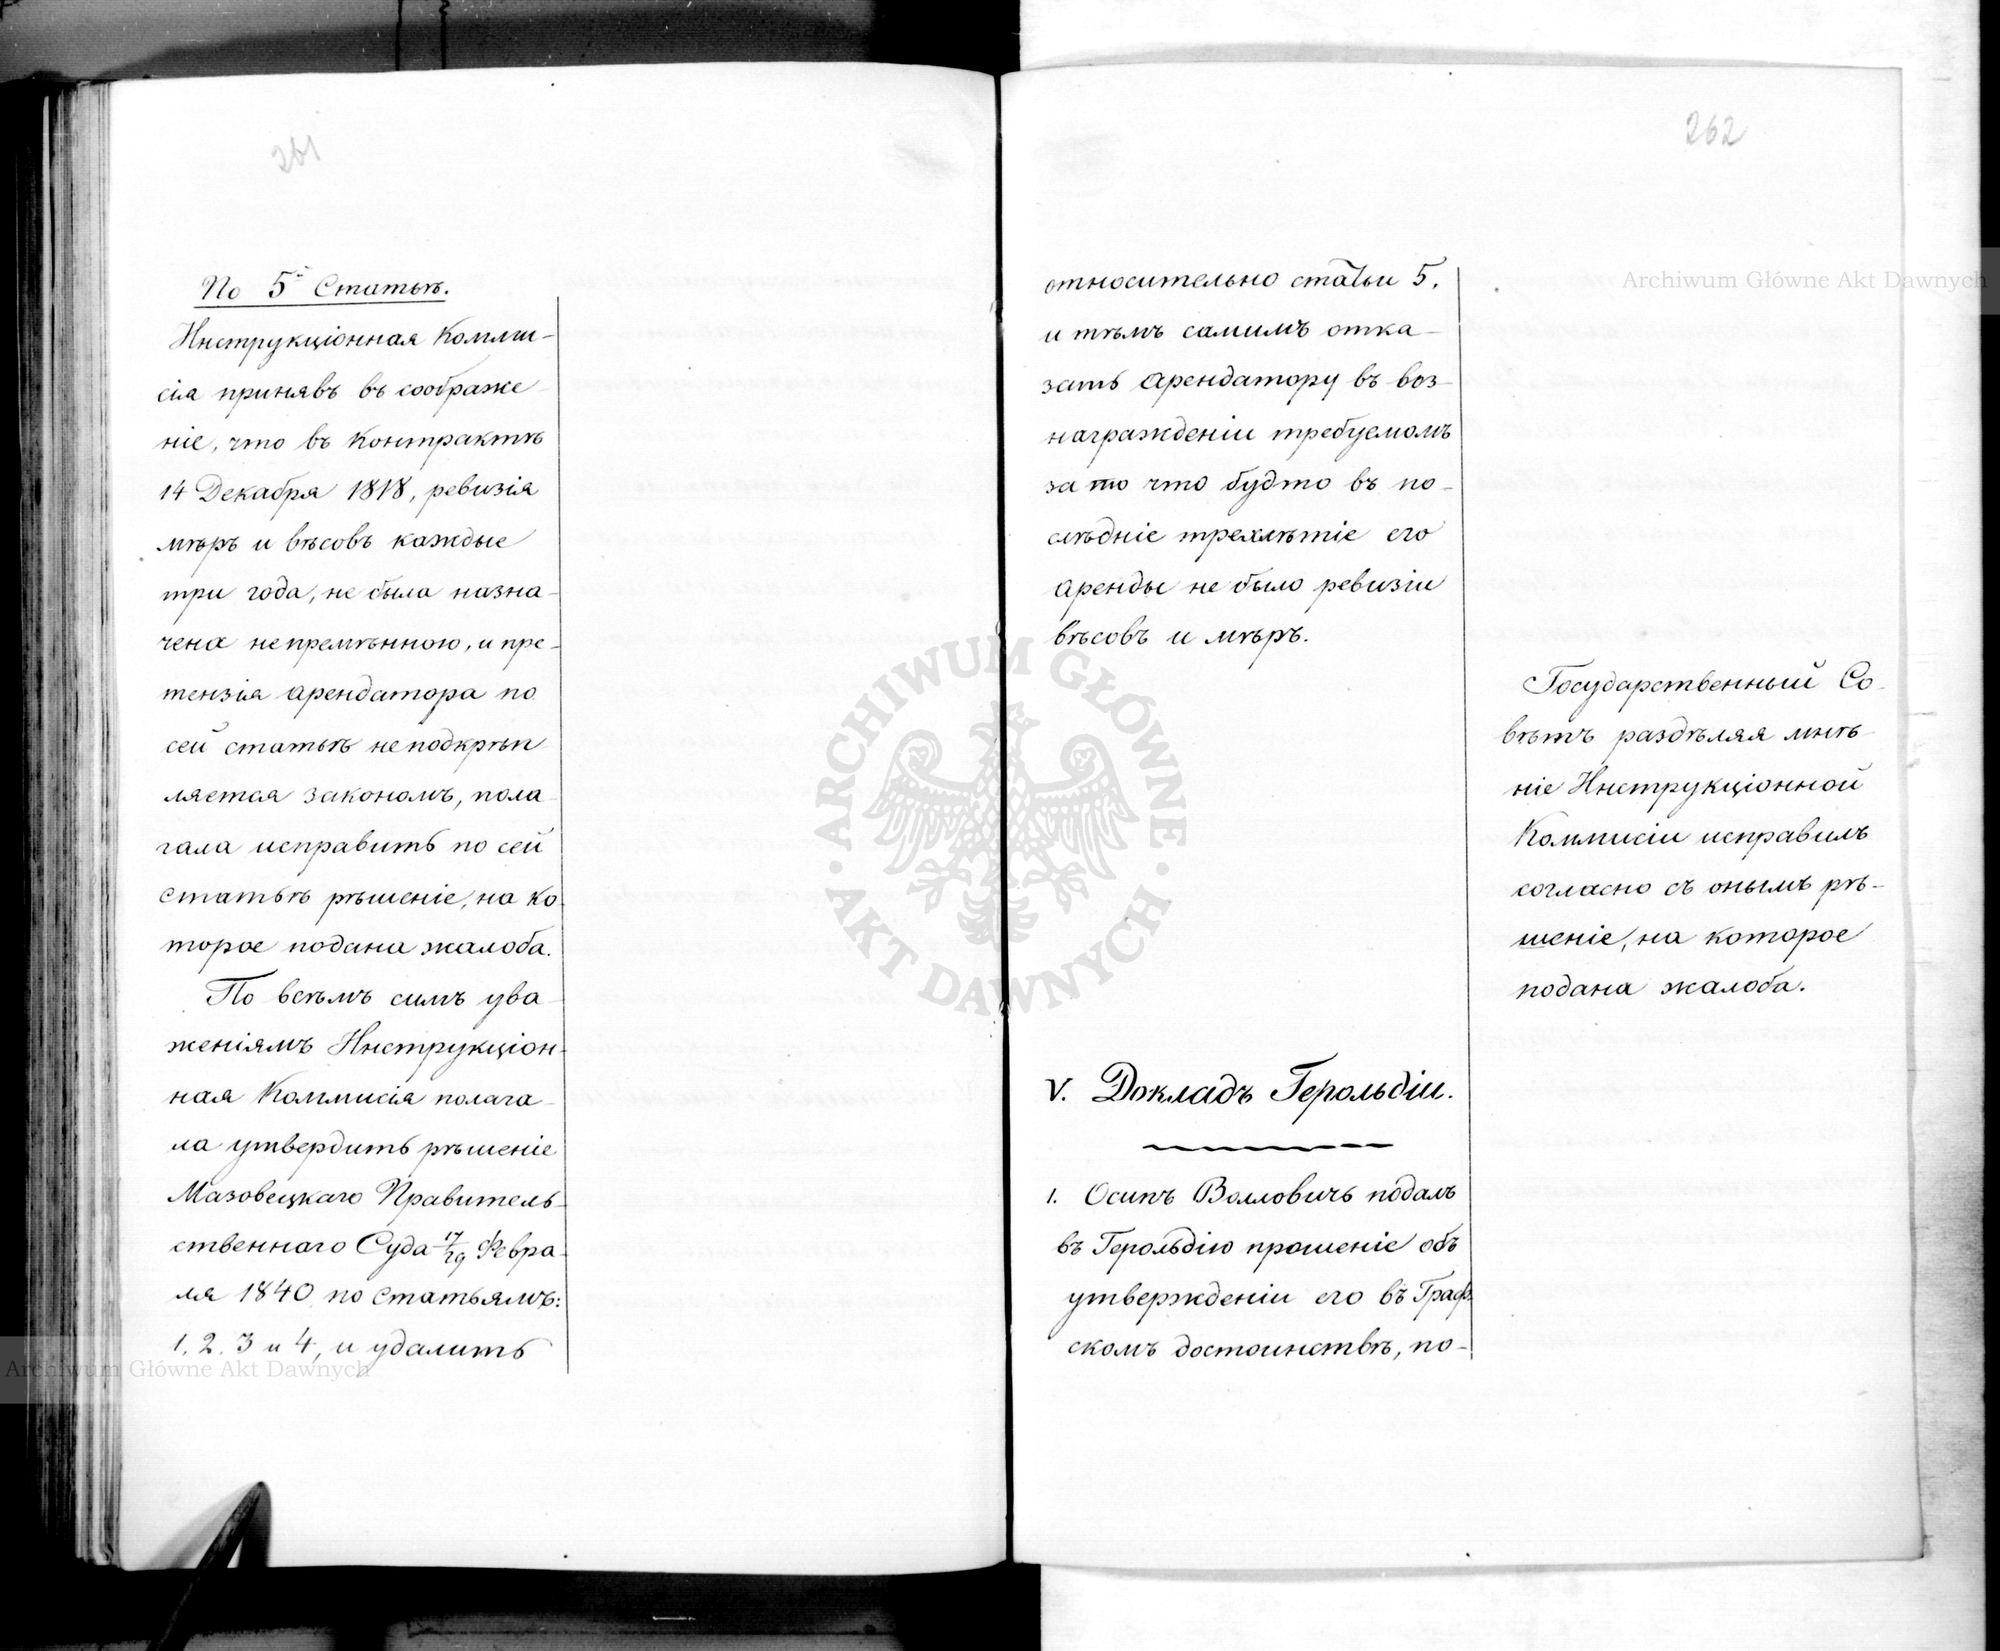 261
По 5й Статьѣ.
Инструкціонная Комми-
сія принявъ въ соображе-
ніе, что въ Контрактѣ
14 Декабря 1818, ревизія
мѣръ и вѣсовъ каждые
три года, не была назна-
чена непремѣнною, и пре-
тензія арендатора по
сей статьѣ не подкрѣп-
ляется закономъ, пола-
гала исправить по сей
статьѣ рѣшеніе, на ко-
торое подана жалоба.
По всѣмъ симъ ува-
женіямъ Инструкціон-
ная Коммисія полага-
ла утвердить рѣшеніе
Мазовецкаго Правитель-
ственнаго Суда 17/29 Февра-
ля 1840 по статьямъ:
1. 2. 3 и 4, и удалить
262
относительно статьи 5.
и тѣмъ самимъ отка-
зать арендатору въ воз-
награжденіи требуемомъ
за то что будто въ по-
слѣдніе трехлѣтіе его
аренды не было ревизіи
вѣсовъ и мѣръ.
Государственный Со-
вѣтъ раздѣляя мнѣ-
ніе Инструкціонной
Коммисіи исправилъ
согласно съ онымъ рѣ-
шеніе, на которое
подана жалоба.
V. Докладъ Герольдіи.
1. Осипъ Волловичъ подалъ
въ Герольдію прошеніе объ
утвержденіи его въ Граф-
скомъ достоинствѣ, по-
Archiwum Główne Akt Dawnych
Archiwum Główne Akt Dawnych
ARCHIWUM GŁÓWNE
AKT DAWNYCH